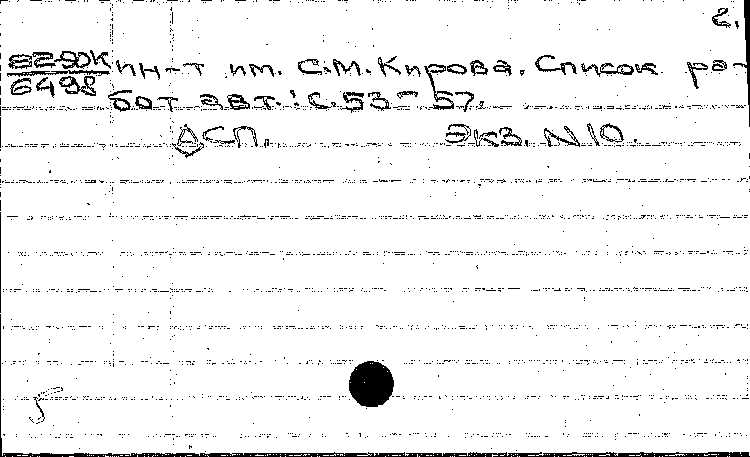 2.
22-90К ин-т им. С.М. Кирова. Список ра-
6498 бот авт.: С. 53-57.
ДСП. Экз. N 10.